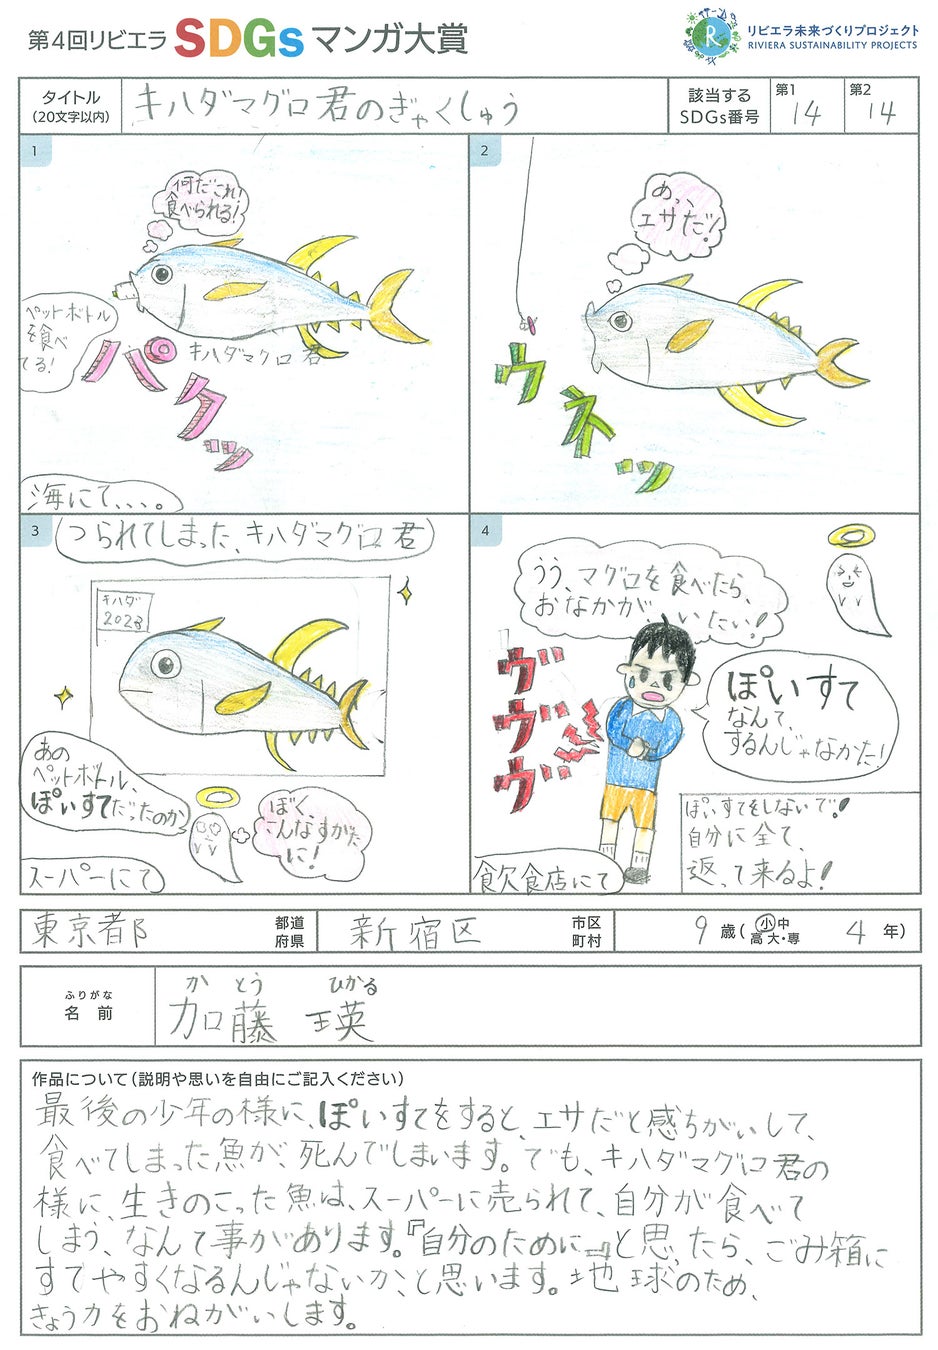 第4回リビエラ SDGs マンガ大賞
リビエラ未来づくりプロジェクト
RIVIERA SUSTAINABILITY PROJECTS
タイトル
(20文字以内)
キハダマグロ君のぎゃくしゅう
該当する
SDGs番号
第1
14
第2
14
1
何だこれ!
食べられる!
ペットボトル
を食べ
てる!
パクッ
キハダマグロ君
海にて、、、。
2
あっ、
エサだ!
ウネッ
3
つられてしまった、キハダマグロ君
キハダ
2023
あの
ペットボトル、
ぽいすてだったのか
ぼく、
こんなすがた
に!
スーパーにて
4
うう、マグロを食べたら、
おなかが、いたい!
ヴヴヴ
ぽいすて
なんて、
するんじゃなかた!
飲食店にて
ぽいすてをしないで!
自分に全て、
返って来るよ!
東京者阝
都道
府県
新宿区
市区
町村
9 歳(小中
高大・専 4 年)
ふりがな
名前
かとう ひかる
加藤 瑛
作品について(説明や思いを自由にご記入ください)
最後の少年の様に、ぽいすてをすると、エサだと感ちがいして、
食べてしまった魚が、死んでしまいます。でも、キハダマグロ君の
様に、生きのこった魚は、スーパーに売られて、自分が食べて
しまう、なんて事があります。『自分のために』と思ったら、ごみ箱に
すてやすくなるんじゃないか、と思います。地球のため、
きょう力をおねがいします。